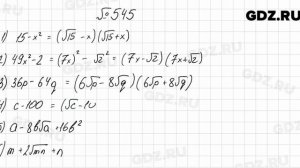 GDZ.RU
№ 545
1) 15-x² = (√15 -x)(√15+x)
2) 49x²-2 = (7x)² - √2² = (7x-√2)(7x+√2)
3) 36p-64q = (6√p-8√q)(6√p+8√q)
4) c-100 = (√c-10
5) a-8b√a+16b²
6) m+2√mn+n
GDZ.RU